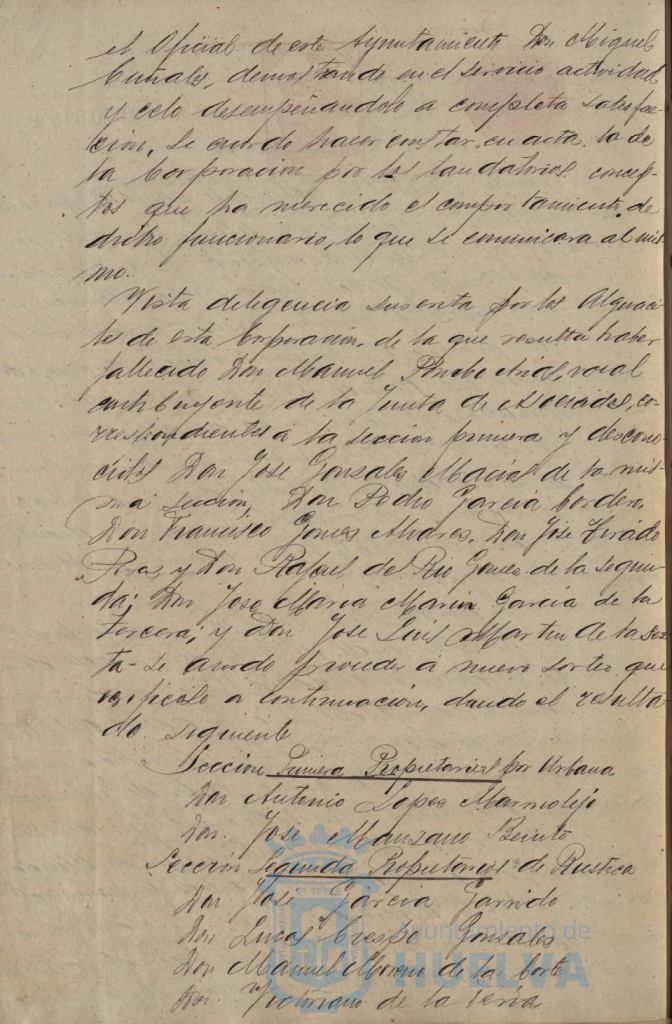 el Oficial de este Ayuntamiento Don Miguel
Cuñales, demostrando en el servicio actividad
y celo desempeñandolo a completa satisfac-
cion, Se acordo hacer constar, en acta, la de
la Corporacion por los laudatorios concep-
tos que ha merecido el comportamiento de
dicho funcionario, lo que se comunicara al mis-
mo.
Vista diligencia suscrita por los Alguaci-
les de esta Corporacion, de la que resulta haber
fallecido Don Manuel Arias, vocal
contribuyente de la Junta de Asociados, co-
rrespondientes á la seccion primera y descono-
cidos Don Jose Gonzales Macias de la mis-
ma seccion, Don Pedro Garcia Cordero,
Don Francisco Gomes Alvares, Don Jose Tirado
y Don Rafael del Rio Gomes de la segun-
da; Don Jose Maria Marin Garcia de la
tercera; y Don Jose Luis Martin de la sex-
ta- se acordo proceder á nuevo sorteo que
verificolo a continuacion, dando el resulta
do siguiente
Seccion Primera Propietarios por Urbana
Don Antonio Lopes Marmolejo
Don Jose Manzano Benito
Seccion Segunda Propietarios de Rustica
Don Jose Garcia Garrido
Don Lucas Crespo Gonzales
Don Manuel Moreno de la Corte
Don Victoriano de la Feria
Ayuntamiento de
HUELVA